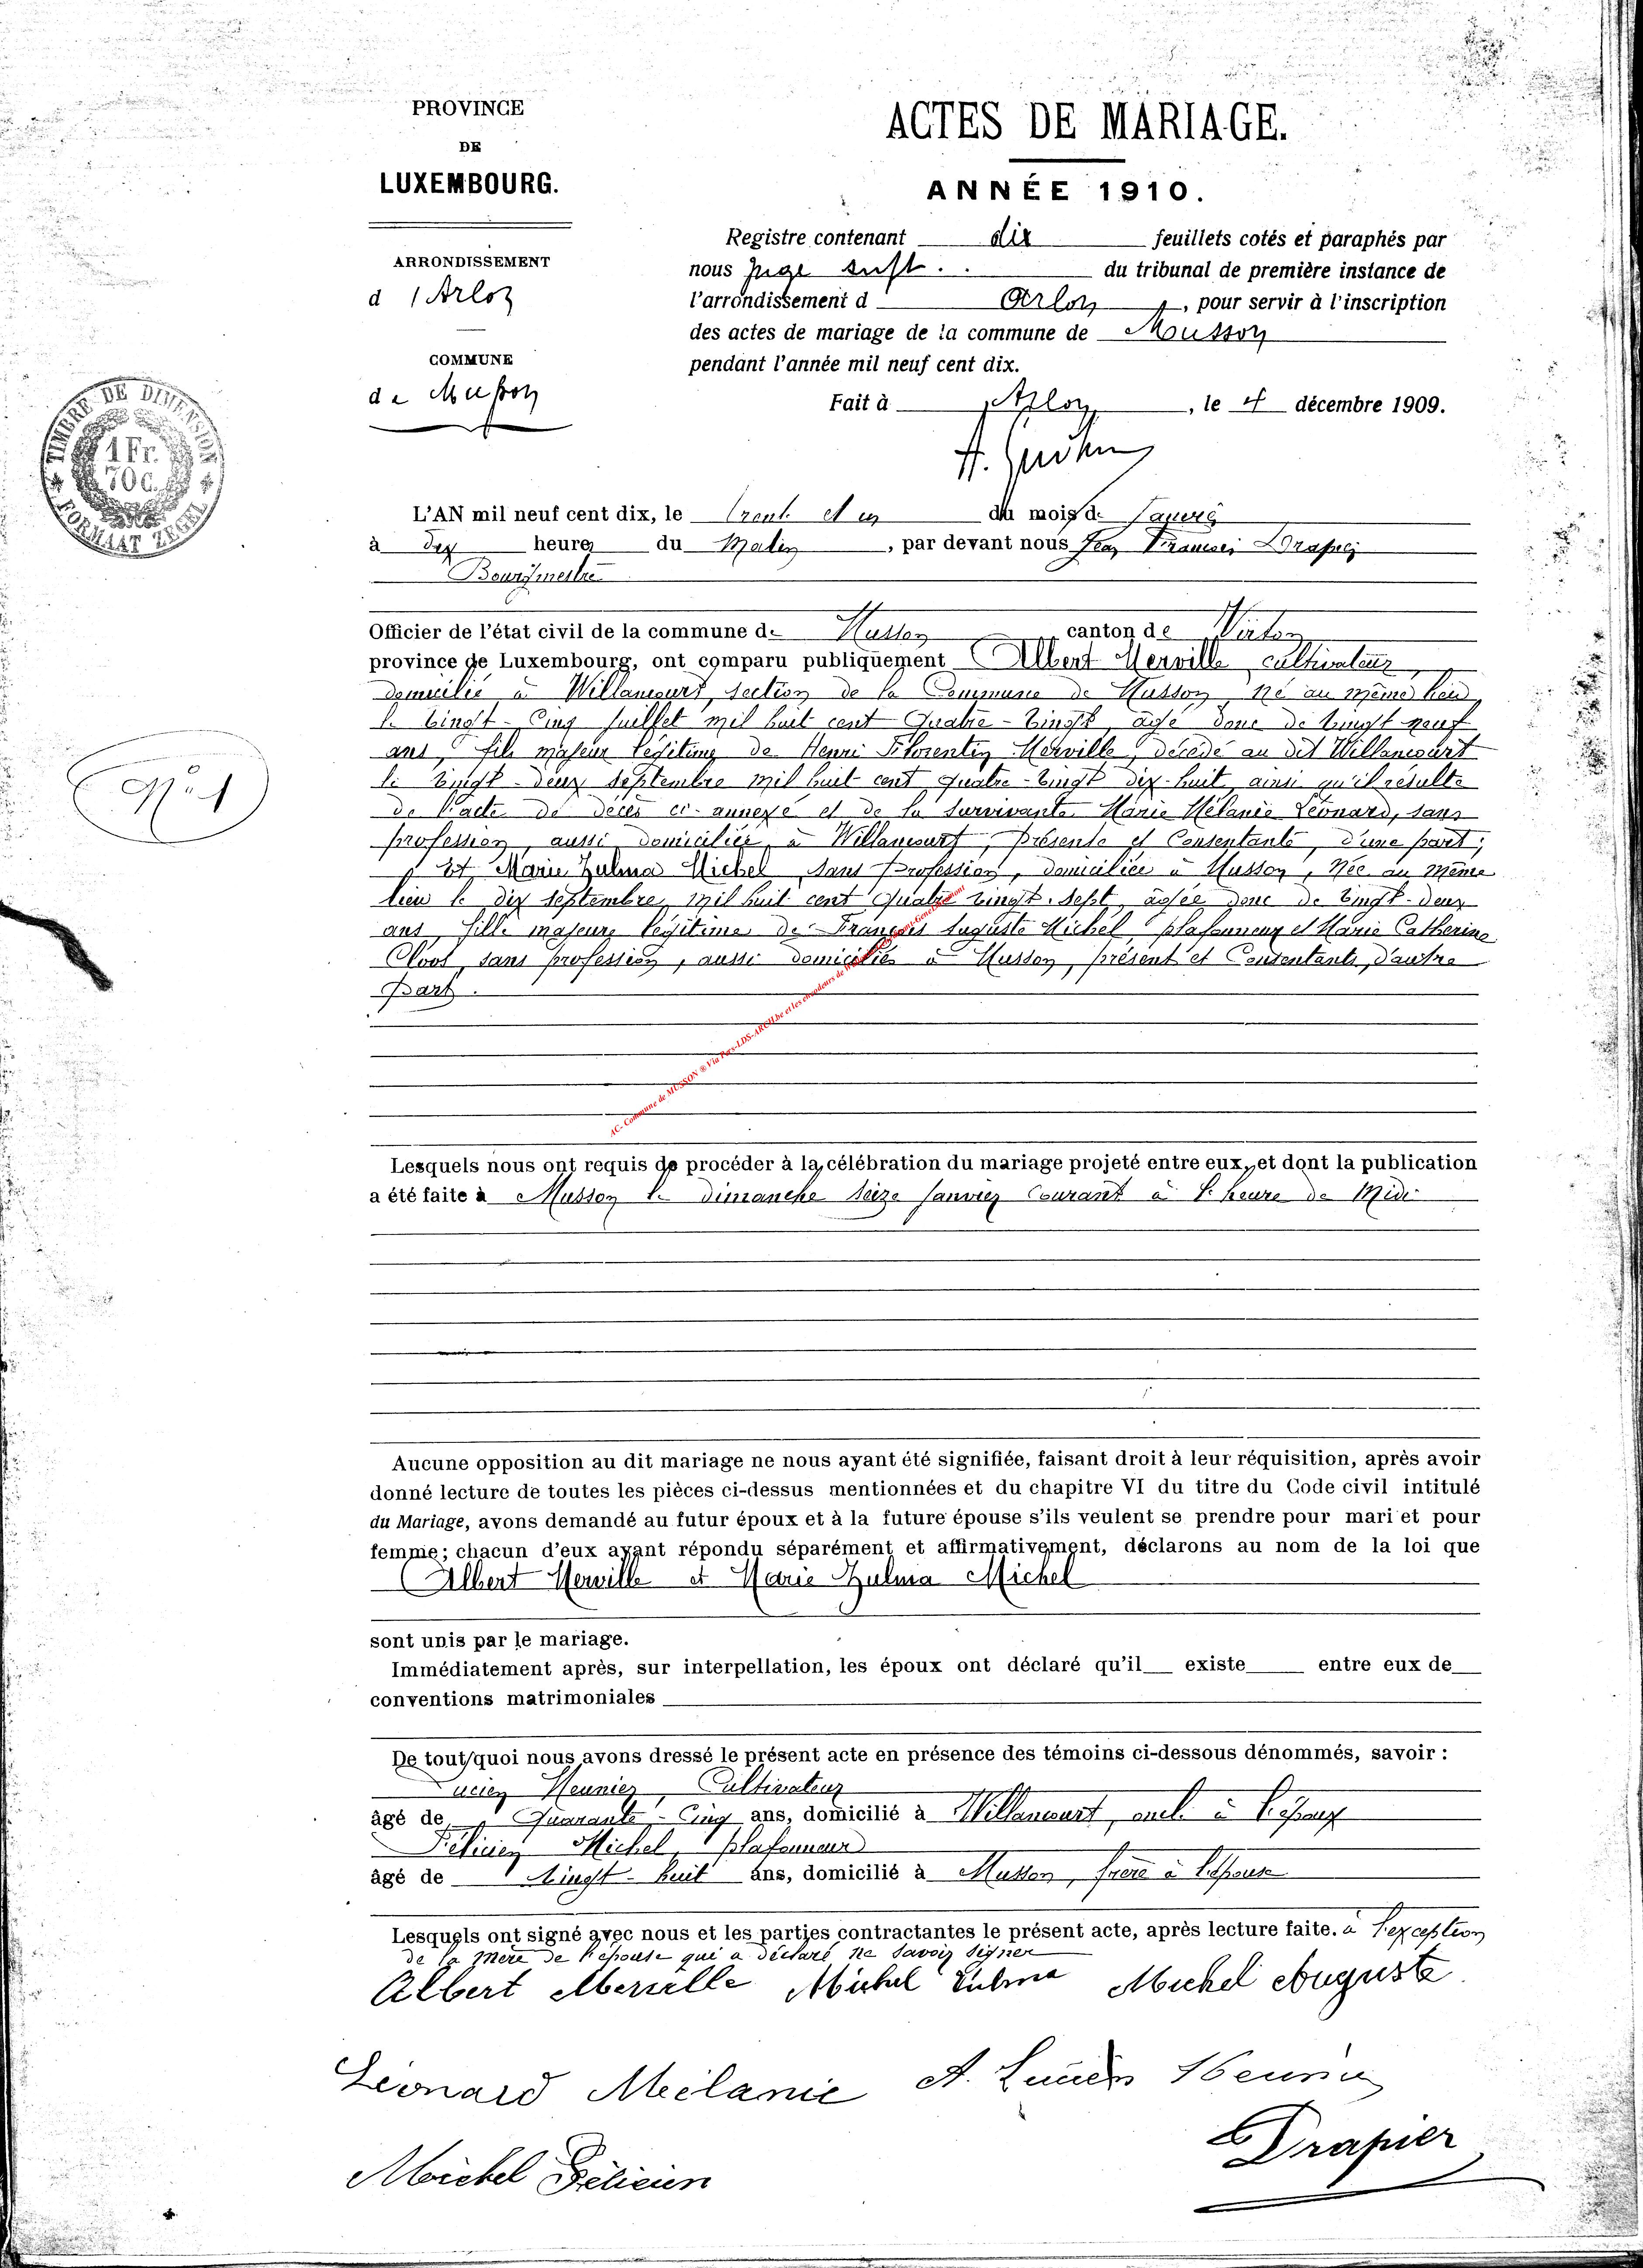 PROVINCE
DE
LUXEMBOURG.
ARRONDISSEMENT
d'Arlon
COMMUNE
de Musson
TIMBRE DE DIMENSION
1 Fr.
70 C.
FORMAAT ZEGEL
N° 1
ACTES DE MARIAGE.
ANNÉE 1910.
Registre contenant dix feuillets cotés et paraphés par
nous Juge du tribunal de première instance de
l'arrondissement d Arlon, pour servir à l'inscription
des actes de mariage de la commune de Mousson
pendant l'année mil neuf cent dix.
Fait à Arlon, le 4 décembre 1909.
L'AN mil neuf cent dix, le trente et un du mois de Janvier
à dix heures du Matin, par devant nous Jean François Drapier
Bourgmestre
Officier de l'état civil de la commune de Musson canton de Virton
province de Luxembourg, ont comparu publiquement Albert Merville cultivateur,
domicilié à Willancourt, section de la Commune de Musson, né au même lieu
le vingt-cinq juillet mil huit cent quatre-vingt, âgé donc de vingt neuf
ans, fils majeur légitime de Henri Florentin Merville, décédé au dit Willancourt
le vingt-deux septembre mil huit cent quatre-vingt dix-huit, ainsi qu'il résulte
de l'acte de décès ci-annexé et de la survivante Marie Mélanie Léonard, sans
profession, aussi domiciliée à Willancourt, Présente et Consentante, d'une part;
Et Marie Zulma Michel, sans Profession, domiciliée à Musson, née au même
lieu le dix septembre, mil huit cent quatre vingt-sept, âgée donc de vingt-deux
ans, fille majeure légitime de François Auguste Michel plafonneur et Marie Catherine
Cloot, sans profession, aussi domiciliés à Musson, présent et Consentants, d'autre
Part.
AC- Commune de MUSSON ® Via Pars-LDS-ARCH.be et les encodeurs de
Lesquels nous ont requis de procéder à la célébration du mariage projeté entre eux, et dont la publication
a été faite à Musson le dimanche seize janvier Courant à l'heure de Midi
Aucune opposition au dit mariage ne nous ayant été signifiée, faisant droit à leur réquisition, après avoir
donné lecture de toutes les pièces ci-dessus mentionnées et du chapitre VI du titre du Code civil intitulé
du Mariage, avons demandé au futur époux et à la future épouse s'ils veulent se prendre pour mari et pour
femme; chacun d'eux ayant répondu séparément et affirmativement, déclarons au nom de la loi que
Albert Merville et Marie Zulma Michel
sont unis par le mariage.
Immédiatement après, sur interpellation, les époux ont déclaré qu'il existe entre eux de
conventions matrimoniales
De tout quoi nous avons dressé le présent acte en présence des témoins ci-dessous dénommés, savoir :
Lucien Meunier, Cultivateur
âgé de Quarante-Cinq ans, domicilié à Willancourt, oncle à l'époux
Félicien Michel, plafonneur
âgé de Vingt-huit ans, domicilié à Musson, frère à l'épouse
Lesquels ont signé avec nous et les parties contractantes le présent acte, après lecture faite. à l'exception
de la mère de l'épouse qui a déclaré ne savoir signer
Albert Merville Michel Zulma Michel Auguste
Léonard Mélanie A. Lucien Meunier
Drapier
Michel Félicien